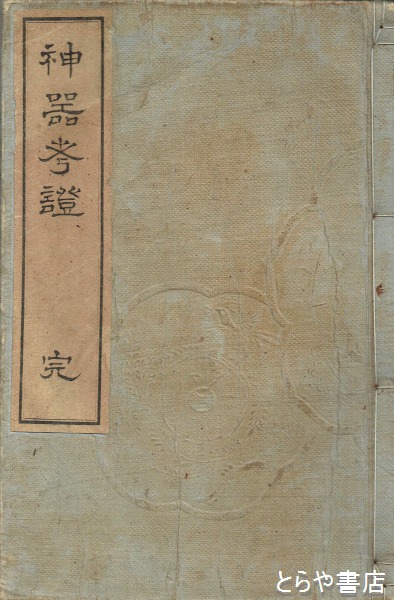 神器考證 完
とらや書店